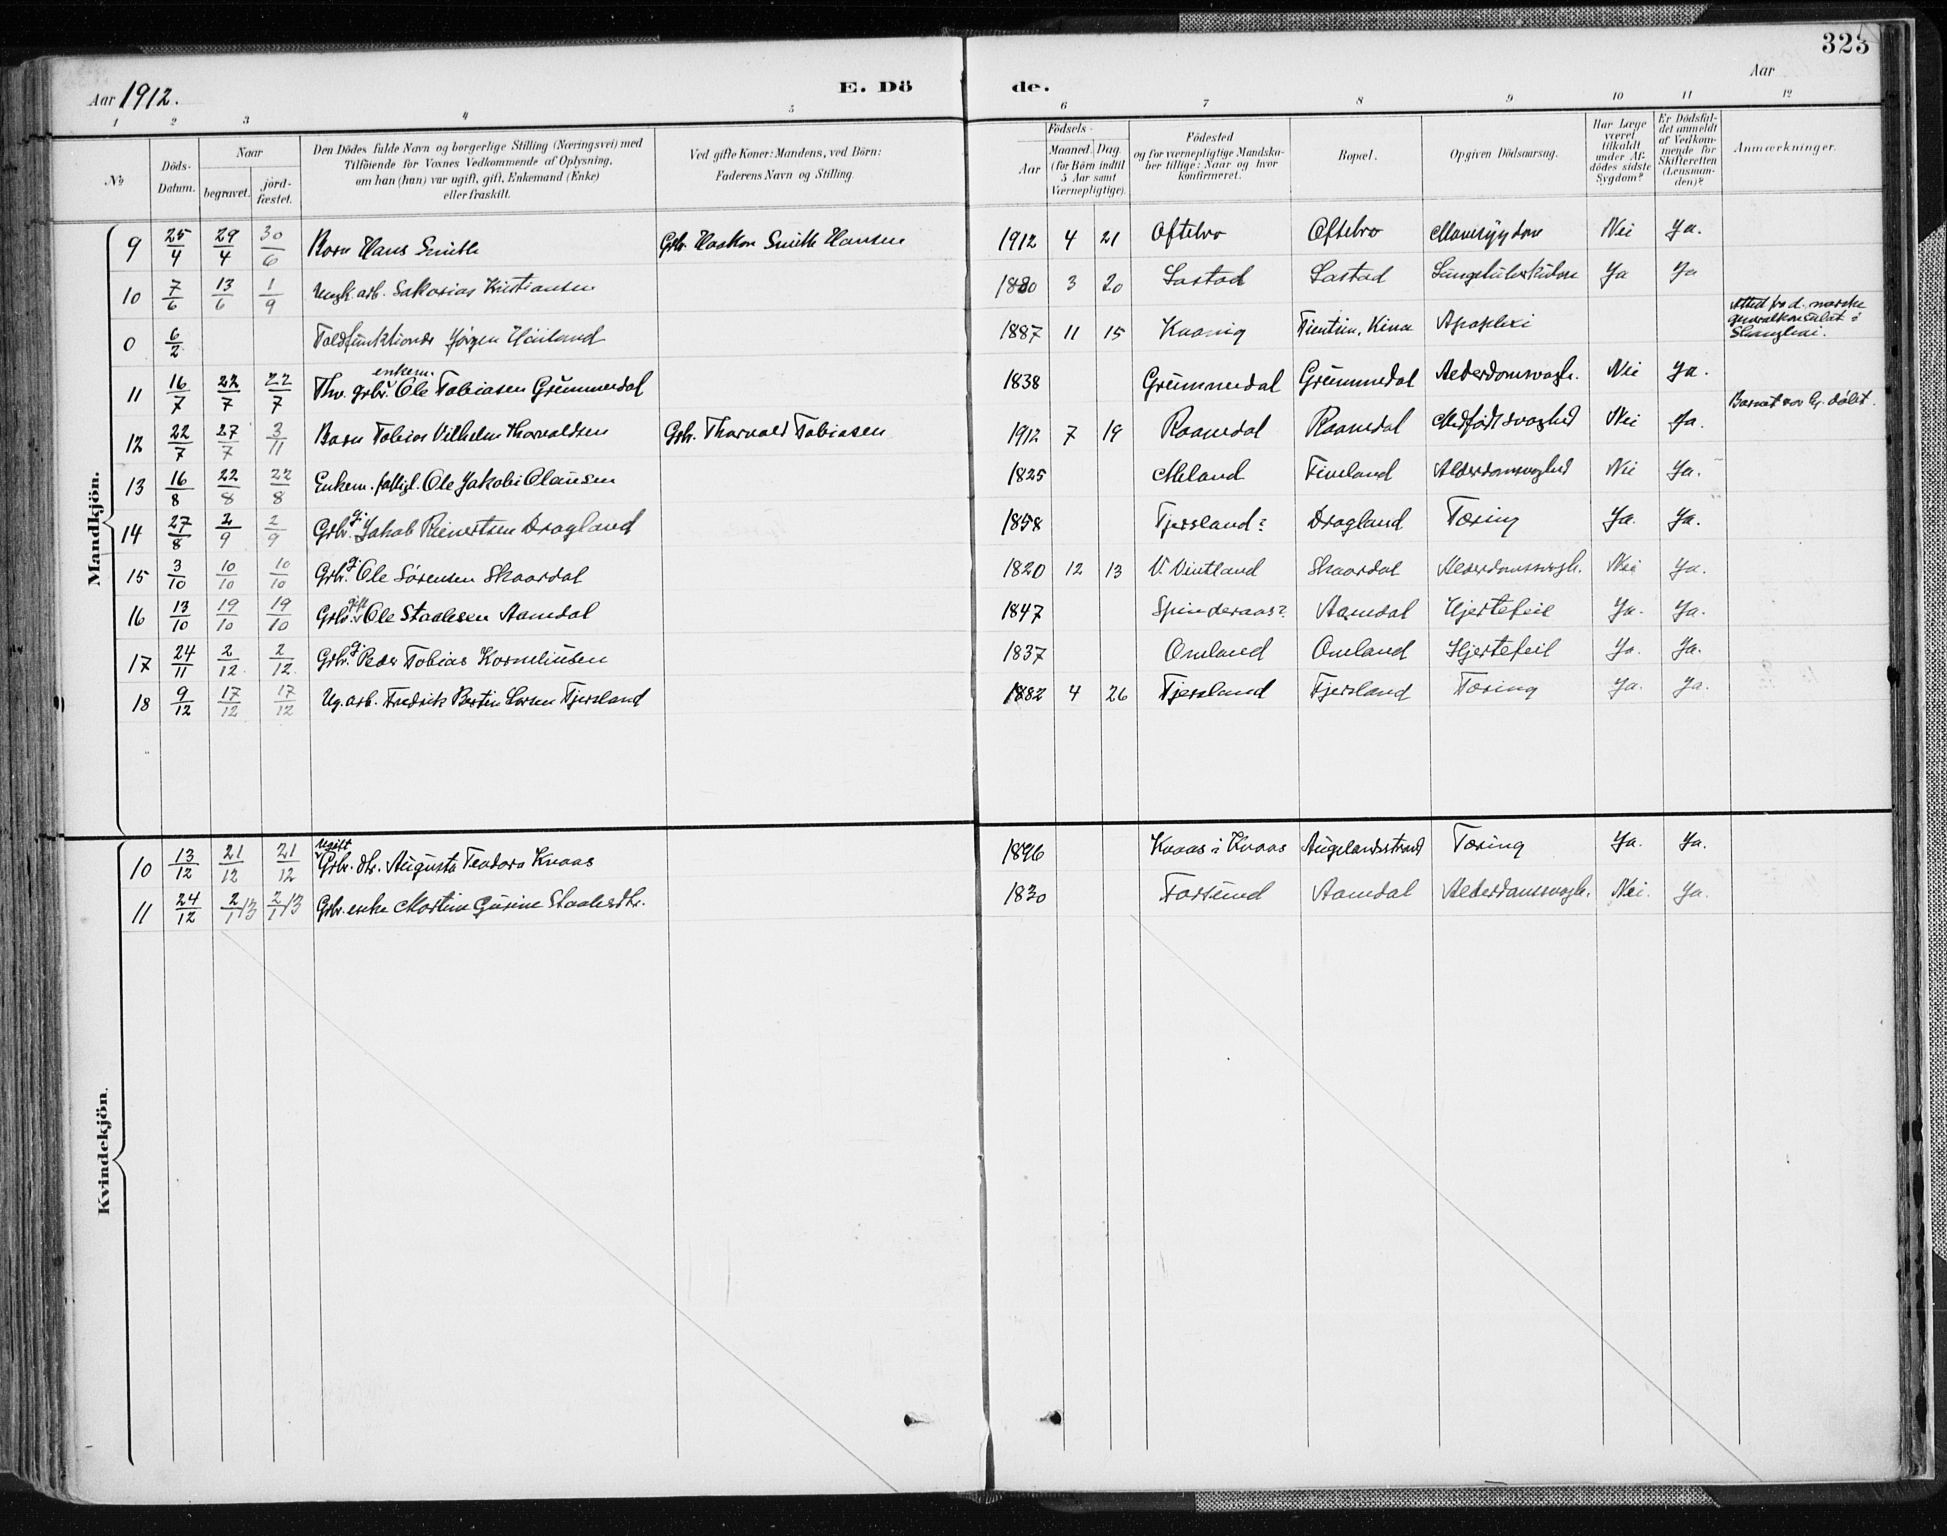 323
Aar 1912. E. Dö de. Aar
1 2 3 4 5 6 7 8 9 10 11 12
№
Döds-Datum.
Naar
begravet.
jord-fæstet.
Den Dödes fulde Navn og borgerlige Stilling (Næringsvei) med
Tilföiende for Voxnes Vedkommende af Oplysning,
om han (hun) var ugift, gift, Enkemand (Enke)
eller fraskilt.
Ved gifte Koner: Mandens, ved Börn:
Faderens Navn og Stilling.
Födsels-
Aar
Maaned. Dag
(for Börn indtil
5 Aar samt
Værnepligtige).
Födested
og for værnepligtige Mandska-
ber tillige: Naar og hvor
konfirmeret.
Bopæl.
Opgiven Dödsaarsag.
Har Læge
været
tilkaldt
under Af-
dödes sidste
Sygdom?
Er Dödsfal-
det anmeldt
af Vedkom-
mende for
Skifteretten
(Lensman-
den)?
Anmærkninger.
Mandkjön.
9 25/4 29/4 30/6 Barn Hans Smith Grb. Haakon Smith Hansen 1912 4 21 Oftebro Oftebro Mavesygdom Nei Ja.
10 7/6 13/6 1/9 Ungk. arb. Sakarias Kristiansen 1880 3 20 Lastad Lastad Lungetuberkulose Ja Ja
0 6/2 Toldfunktionær Jørgen Høiland 1887 11 15 Tientsin, Kina Apoplexi
Attest fra d. norske
generalkonsulat i
Shanghai.
enkem.
11 16/7 22/7 22/7 Fhv. grbr. Ole Tobiasen Grummedal 1838 Grummedal Grummedal Alderdomsvagh. Nei Ja.
12 22/7 27/7 3/11 Barn Tobias Vilhelm Thorvaldsen Grb. Thorvald Tobiasen 1912 7 19 Raamdal Raamdal Medfødt svaghed Nei Ja.
Barnet var hj. døbt.
13 16/8 22/8 22/8 Enkem. fattigl. Ole Jakobi Olausen 1825 Meland Fineland Alderdomsvaghed Nei Ja.
14 27/8 2/9 2/9 Grbr. g. Jakob Reinertsen Dragland 1858 Fjersland? Dragland Tæring Ja. Ja.
15 3/10 10/10 10/10 Grbr. g. Ole Sørensen Skaardal 1820 12 13 V. Vintland Skaardal Alderdomsvagh. Nei Ja.
16 13/10 19/10 19/10 Grbr. gift Ole Staalesen Aamdal 1847 Spinderaas? Aamdal Hjertefeil Ja. Ja.
17 24/11 2/12 2/12. Grbr. g. Peder Tobias Korneliusen 1837 Omland Omland Hjertefeil Ja. Ja.
18 9/12 17/12 17/12 Ug. arb. Fredrik Bertin Larsen Fjersland 1882 4 26 Fjersland Fjersland Tæring Ja. Ja.
Kvindekjön.
ugift
10 13/12 21/12 21/12 Grbr. dtr. Augusta Teodora Knaas 1896 Knaas i Kvaas Augelandsstrand Tæring Ja. Ja.
11 24/12 2/1 13 2/1 13 Grbr. enke Martine Gurine Staalesdtr. 1830 Farsund Aamdal Alderdomsvagh. Nei. Ja.